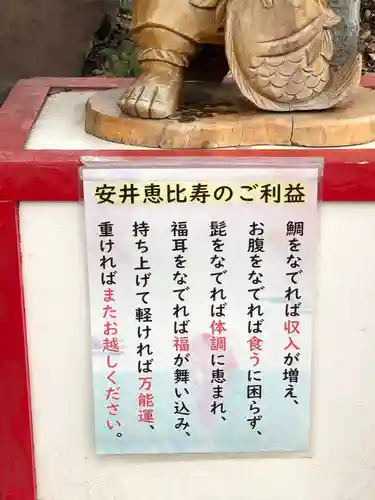 安井恵比寿のご利益
鯛をなでれば収入が増え、
お腹をなでれば食うに困らず、
髭をなでれば体調に恵まれ、
福耳をなでれば福が舞い込み、
持ち上げて軽ければ万能運、
重ければまたお越しください。